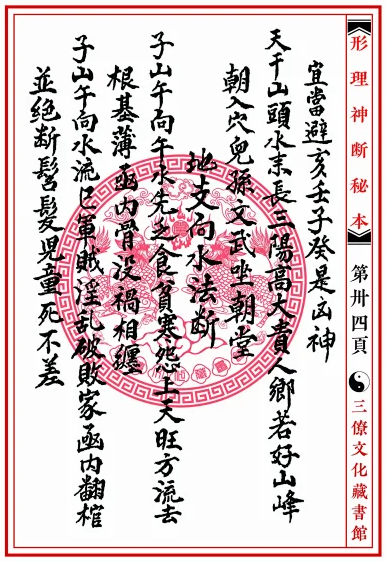 形理神断秘本
第卅四頁
三僚文化藏書館
宜當避亥壬子癸是凶神
天干山頭水来長三陽高大貴人鄉若好山峰
朝入穴兒孫文武坐朝堂
地支向水法断
子山午向午水先乏食貧寒怨上天旺方流去
根基薄凾内骨没禍相纏
子山午向水流巳軍賊淫乱破敗家凾内翻棺
並絶断髫髮児童死不差